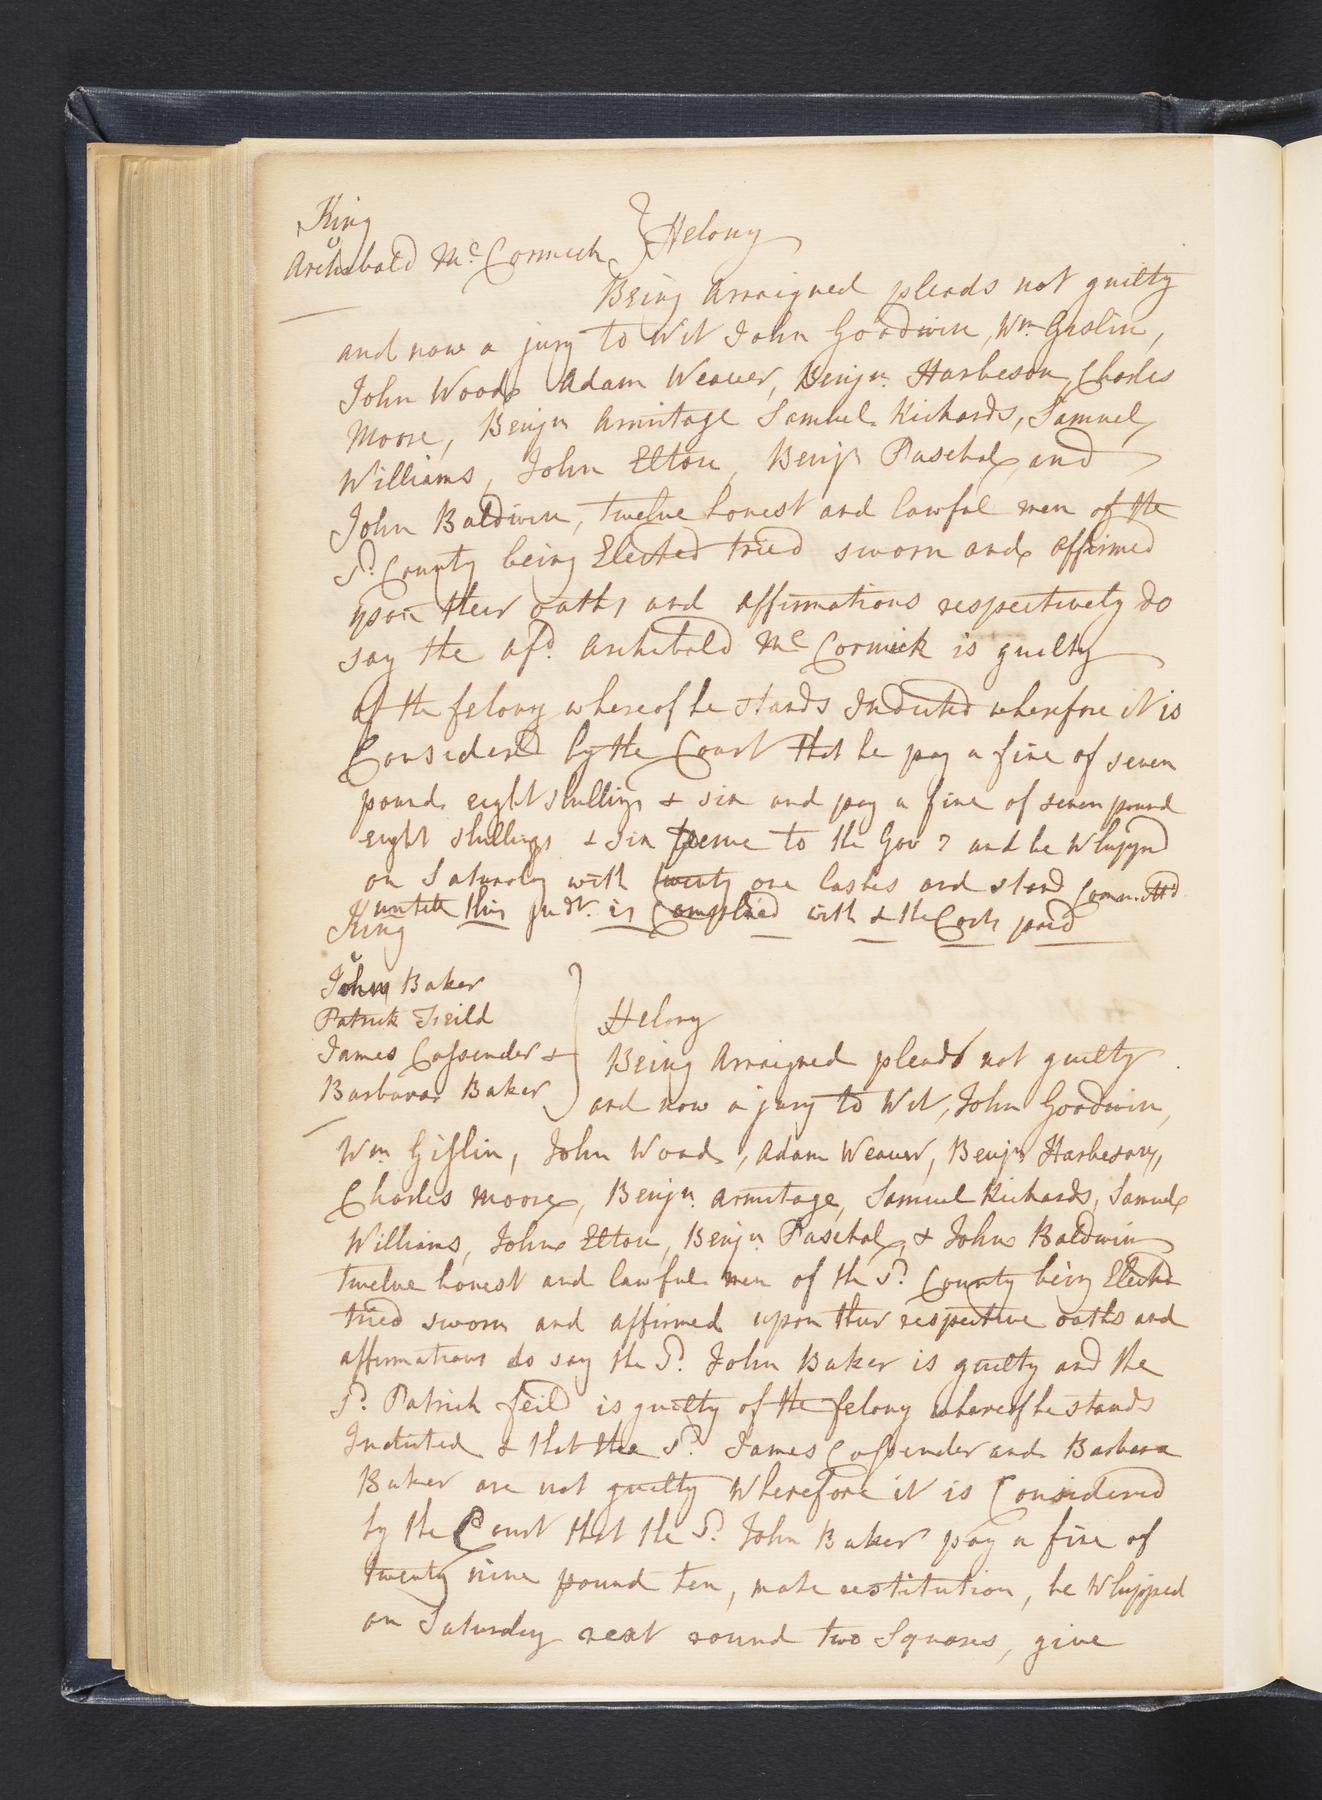 King
v
Archibald Mc. Cormick } Felony
Being Arraigned pleads not guilty
and now a jury to Wit John Goodwin, Wm. Gislin,
John Woods Adam Weaver, Benjn. Harbeson, Charles
Moore, Benjn Armitage Samuel Richards, Samuel
Williams, John Elton, Benjn Paschal, and
John Baldwin, twelve honest and lawful men of the
Sd. County being Elected tried sworn and affirmed
upon their oaths and affirmations respectively do
say the afd. Archibald Mc Cormick is guilty
of the felony whereof he stands Indicted wherefore it is
Considered by the Court that he pay a fine of seven
pound eight shillings & six and pay a fine of seven pound
eight shillings & six pence to the Govr and be Whipped
on Saturday with twenty one lashes and stand Committd
untill this judt. is Complied with & the Costs paid
King
v
John Baker
Patrick Feild
James Cassender &
Barbara Baker } Felony
Being Arraigned pleads not guilty
and now a jury to Wit, John Goodwin,
Wm Gislin, John Woods, Adam Weaver, Benjn Harbeson,
Charles Moore, Benjn. Armitage, Samuel Richards, Samuel
Williams, John Elton, Benjn Paschal, & John Baldwin
twelve honest and lawful men of the Sd. County being Elected
tried sworn and affirmed upon their respective oaths and
affirmations do say the Sd. John Baker is guilty and the
Sd. Patrick Feild is guilty of the felony whereof he stands
Indicted & that the Sd. James Cassender and Barbara
Baker are not guilty Wherefore it is Considered
by the Court that the Sd. John Baker pay a fine of
twenty nine pound ten, make restitution, be Whipped
on Saturday next round two Squares, give